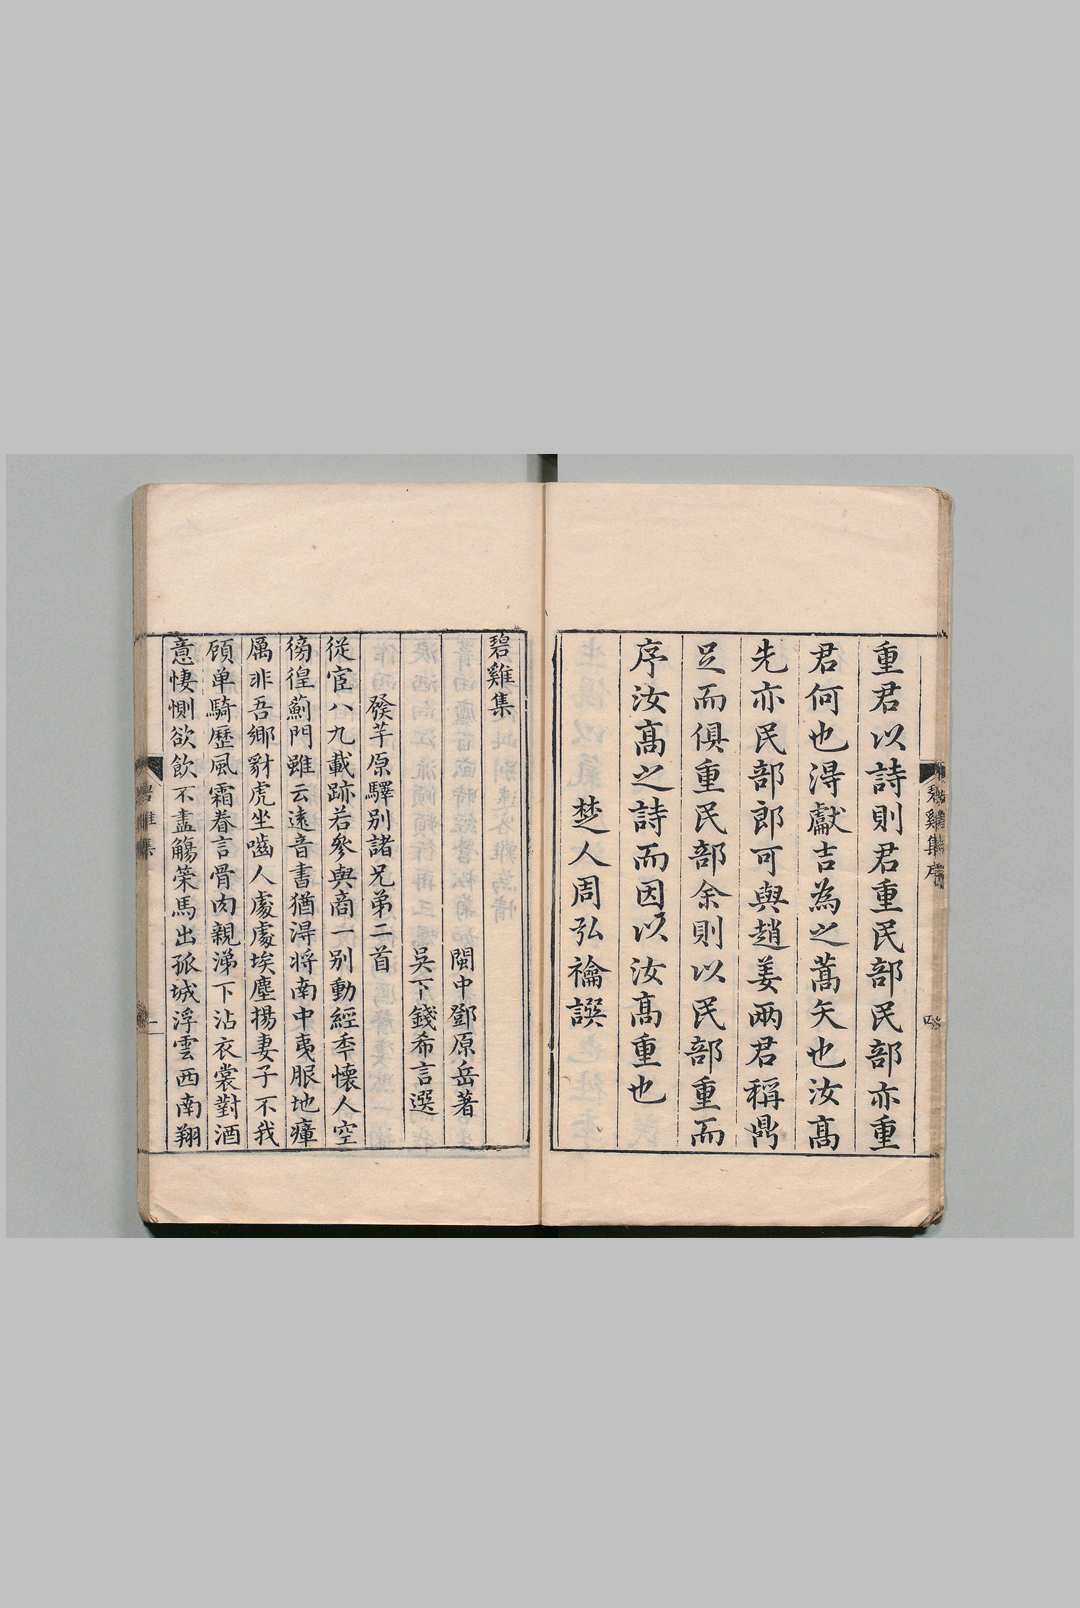 重君以詩則君重民部民部亦重
君何也淂獻吉為之蒿矢也汝髙
先亦民部郎可與趙姜兩君稱鼎
足而俱重民部余則以民部重而
序汝髙之詩而因以汝髙重也
楚人周弘禴譔
碧雞集序
四
碧雞集
閩中鄧原岳著
吳下錢希言選
發芉原驛別諸兄弟二首
從宦八九載跡若參與商一別動經秊懷人空
徬徨薊門雖云逺音書猶淂將南中夷服地瘴
厲非吾鄉豺虎坐嚙人處處埃塵揚妻子不我
顧单騎歷風霜眷言骨肉親涕下沾衣裳對酒
意悽惻欲飲不盡觴策馬出孤城浮雲西南翔
碧雞集
一